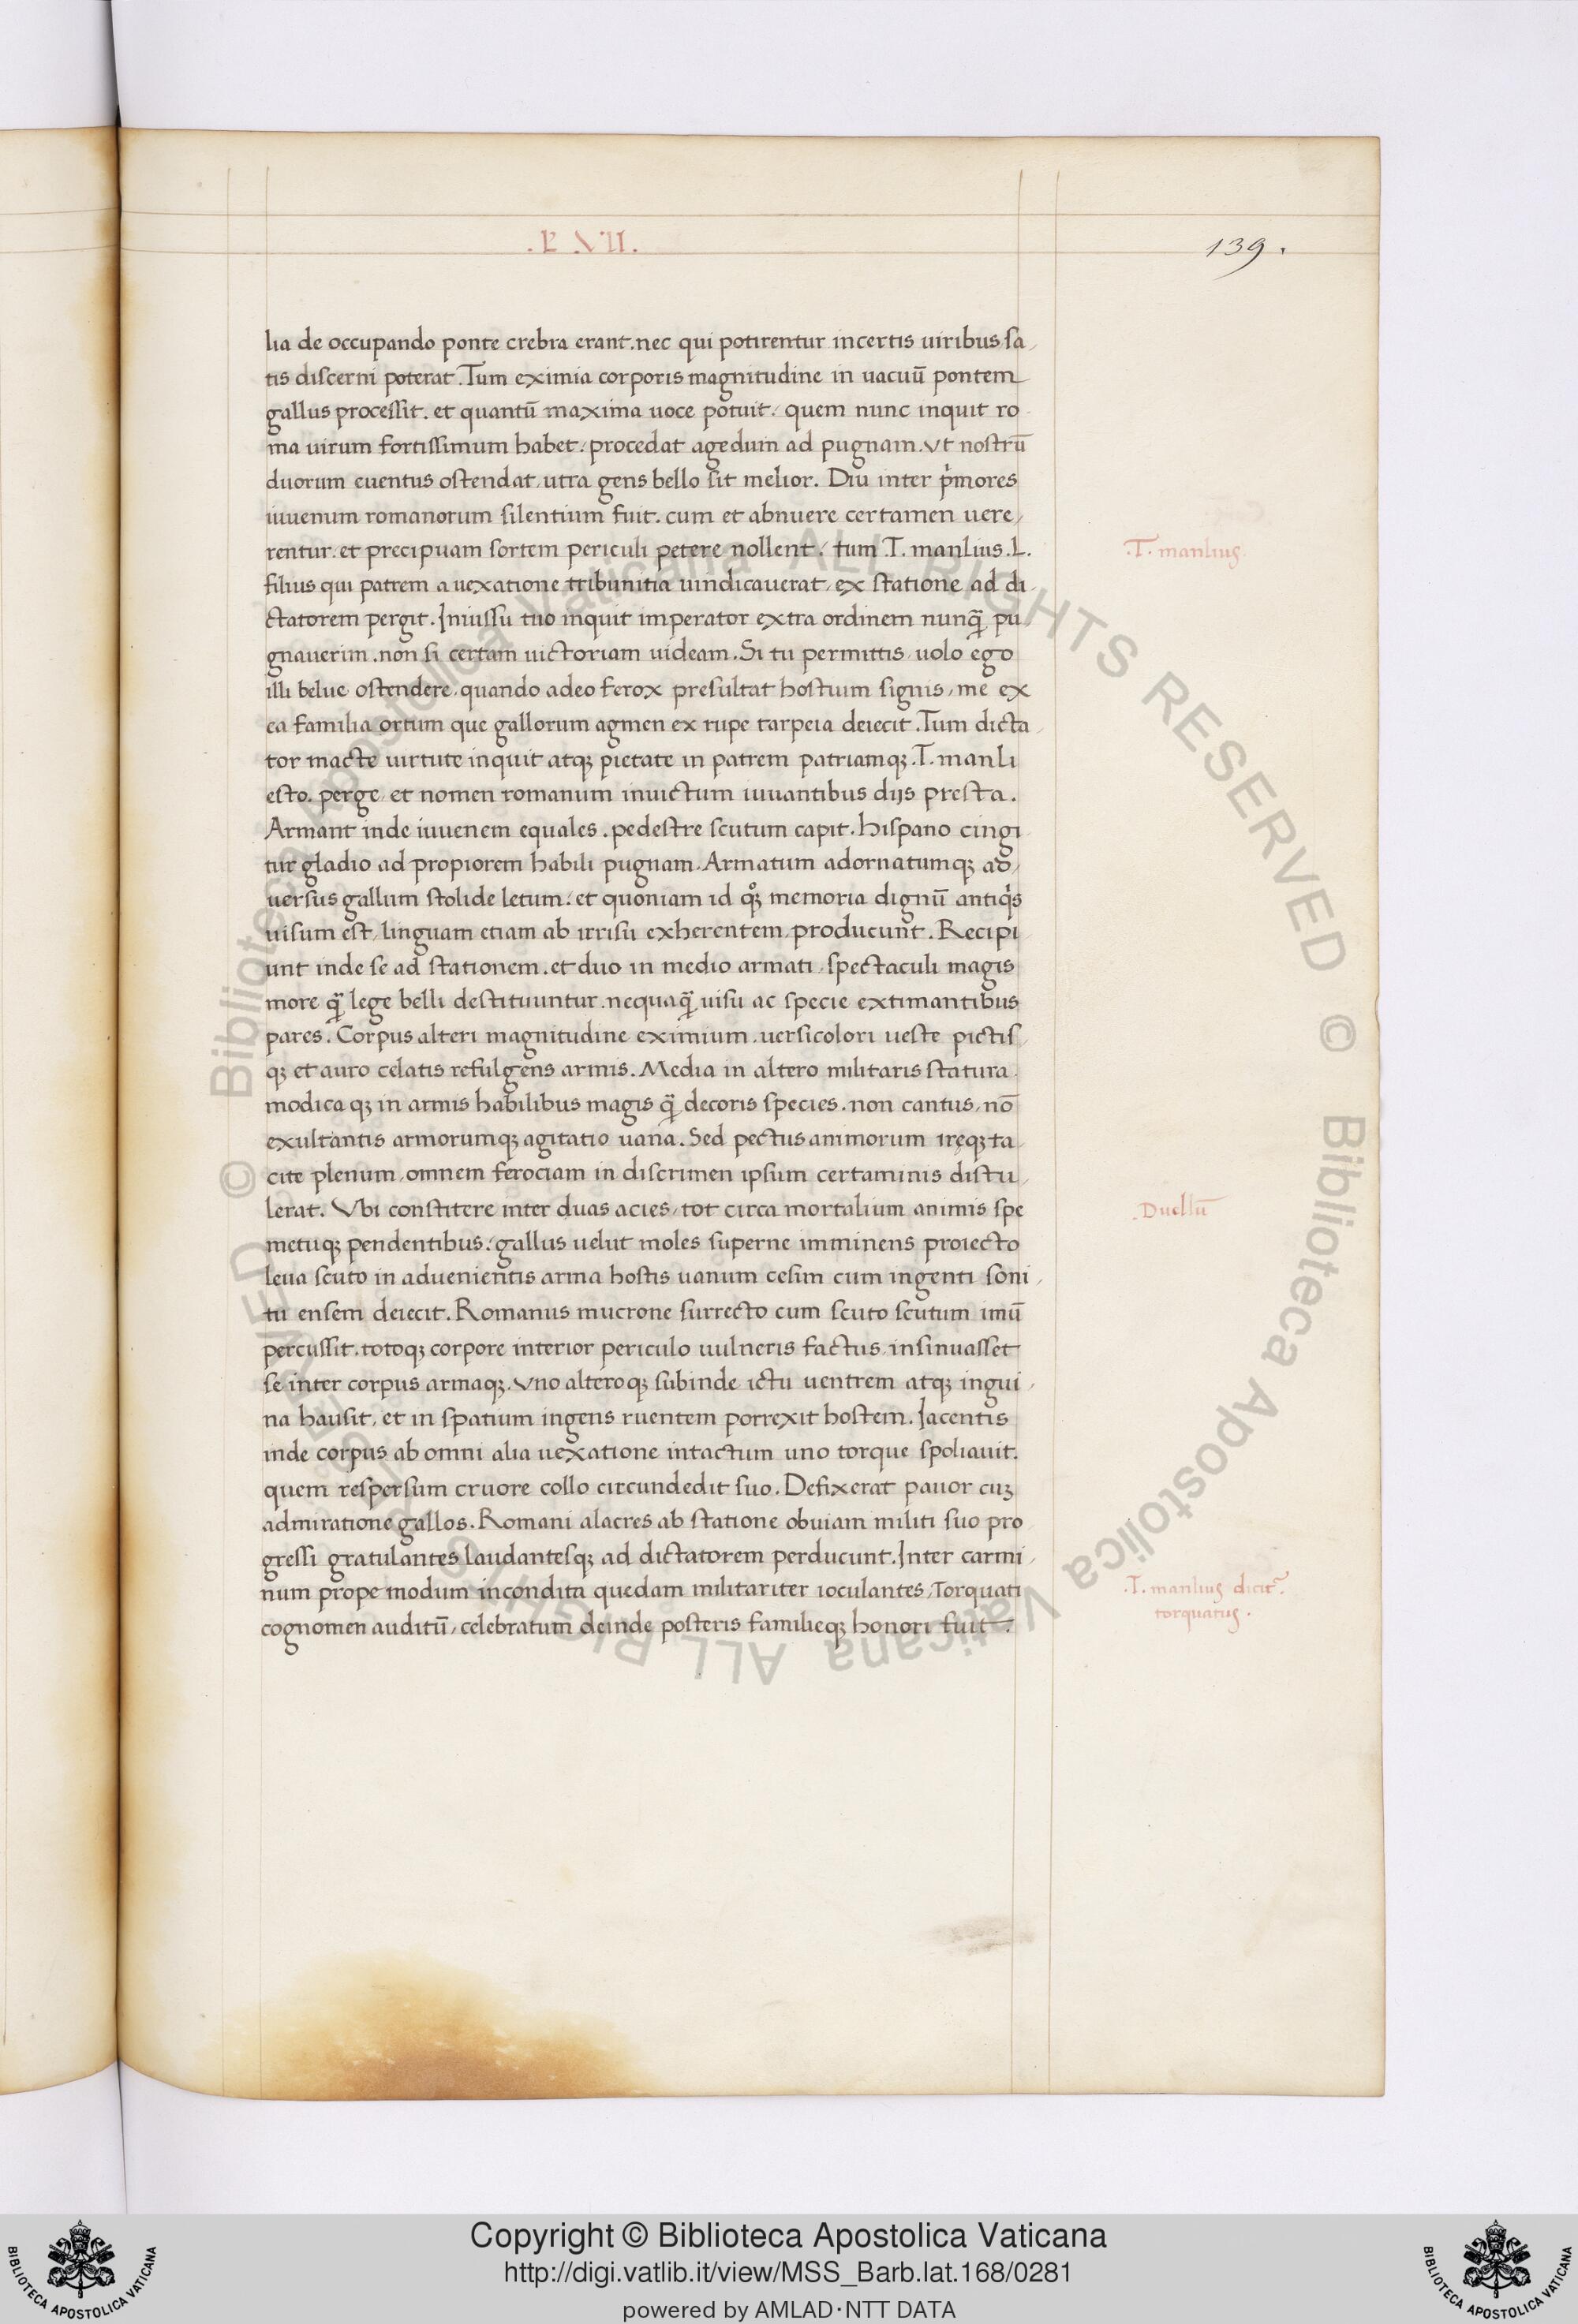 .L VII.
139.
lia de occupando ponte crebra erant. nec qui potirentur incertis uiribus sa
tis discerni poterat. Tum eximia corporis magnitudine in uacuū pontem
gallus processit. et quantū maxima uoce potuit. quem nunc inquit ro
ma uirum fortissimum habet. procedat agedum ad pugnam. Vt nostrū
duorum euentus ostendat, utra gens bello sit melior. Diu inter p̍mores
iuuenum romanorum silentium fuit. cum et abnuere certamen uere,
rentur. et precipuam sortem periculi petere nollent. tum .T. manlius .L.
filius qui patrem a uexatione tribunitia uindicauerat, ex statione ad di
ctatorem pergit. Iniussu tuo inquit imperator extra ordinem nunq̄ pu,
gnauerim. non si certam uictoriam uideam. Si tu permittis, uolo ego
illi belue ostendere, quando adeo ferox presultat hostium signis, me ex
ea familia ortum que gallorum agmen ex rupe tarpeia deiecit. Tum dicta
tor macte uirtute inquit atqꝫ pietate in patrem patriamqꝫ .T. manli
esto. perge, et nomen romanum inuictum iuuantibus dijs presta.
Armant inde iuuenem equales. pedestre scutum capit. hispano cingi
tur gladio ad propiorem habili pugnam. Armatum adornatumqꝫ ad,
uersus gallum stolide letum. et quoniam id qͦꝫ memoria dignū antiq̍s
uisum est, linguam etiam ab irrisu exherentem, producunt. Recipi
unt inde se ad stationem. et duo in medio armati, spectaculi magis
more q̄ lege belli destituuntur. nequaq̄ uisu ac specie extimantibus
pares. Corpus alteri magnitudine eximium. uersicolori ueste pictis
qꝫ et auro celatis refulgens armis. Media in altero militaris statura.
modica qꝫ in armis habilibus magis q̄ decoris species. non cantus, nō
exultantis armorumqꝫ agitatio uana. Sed pectus animorum ireqꝫ ta
cite plenum, omnem ferociam in discrimen ipsum certaminis distu,
lerat. Vbi constitere inter duas acies, tot circa mortalium animis spe
metuqꝫ pendentibus. gallus uelut moles superne imminens proiecto
leua scuto in aduenientis arma hostis uanum cesim cum ingenti soni,
tu ensem deiecit. Romanus mucrone surrecto cum scuto scutum imū
percussit. totoqꝫ corpore interior periculo uulneris factus, insinuasset
se inter corpus armaqꝫ. Vno alteroqꝫ subinde ictu uentrem atqꝫ ingui,
na hausit, et in spatium ingens ruentem porrexit hostem. Iacentis
inde corpus ab omni alia uexatione intactum uno torque spoliauit.
quem respersum cruore collo circundedit suo. Defixerat pauor cuꝫ
admiratione gallos. Romani alacres ab statione obuiam militi suo pro
gressi gratulantes laudantesqꝫ ad dictatorem perducunt. Inter carmi,
num prope modum incondita quedam militariter ioculantes, Torquati
cognomen auditū, celebratum deinde posteris familieqꝫ honori fuit.
.T. manlius.
.Duellū
.T. manlius dicit᷑
torquatus.
© Biblioteca Apostolica Vaticana ALL RIGHTS RESERVED
© Biblioteca Apostolica Vaticana ALL RIGHTS RESERVED
Copyright © Biblioteca Apostolica Vaticana
http://digi.vatlib.it/view/MSS_Barb.lat.168/0281
powered by AMLAD·NTT DATA
BIBLIOTECA APOSTOLICA VATICANA
BIBLIOTECA APOSTOLICA VATICANA